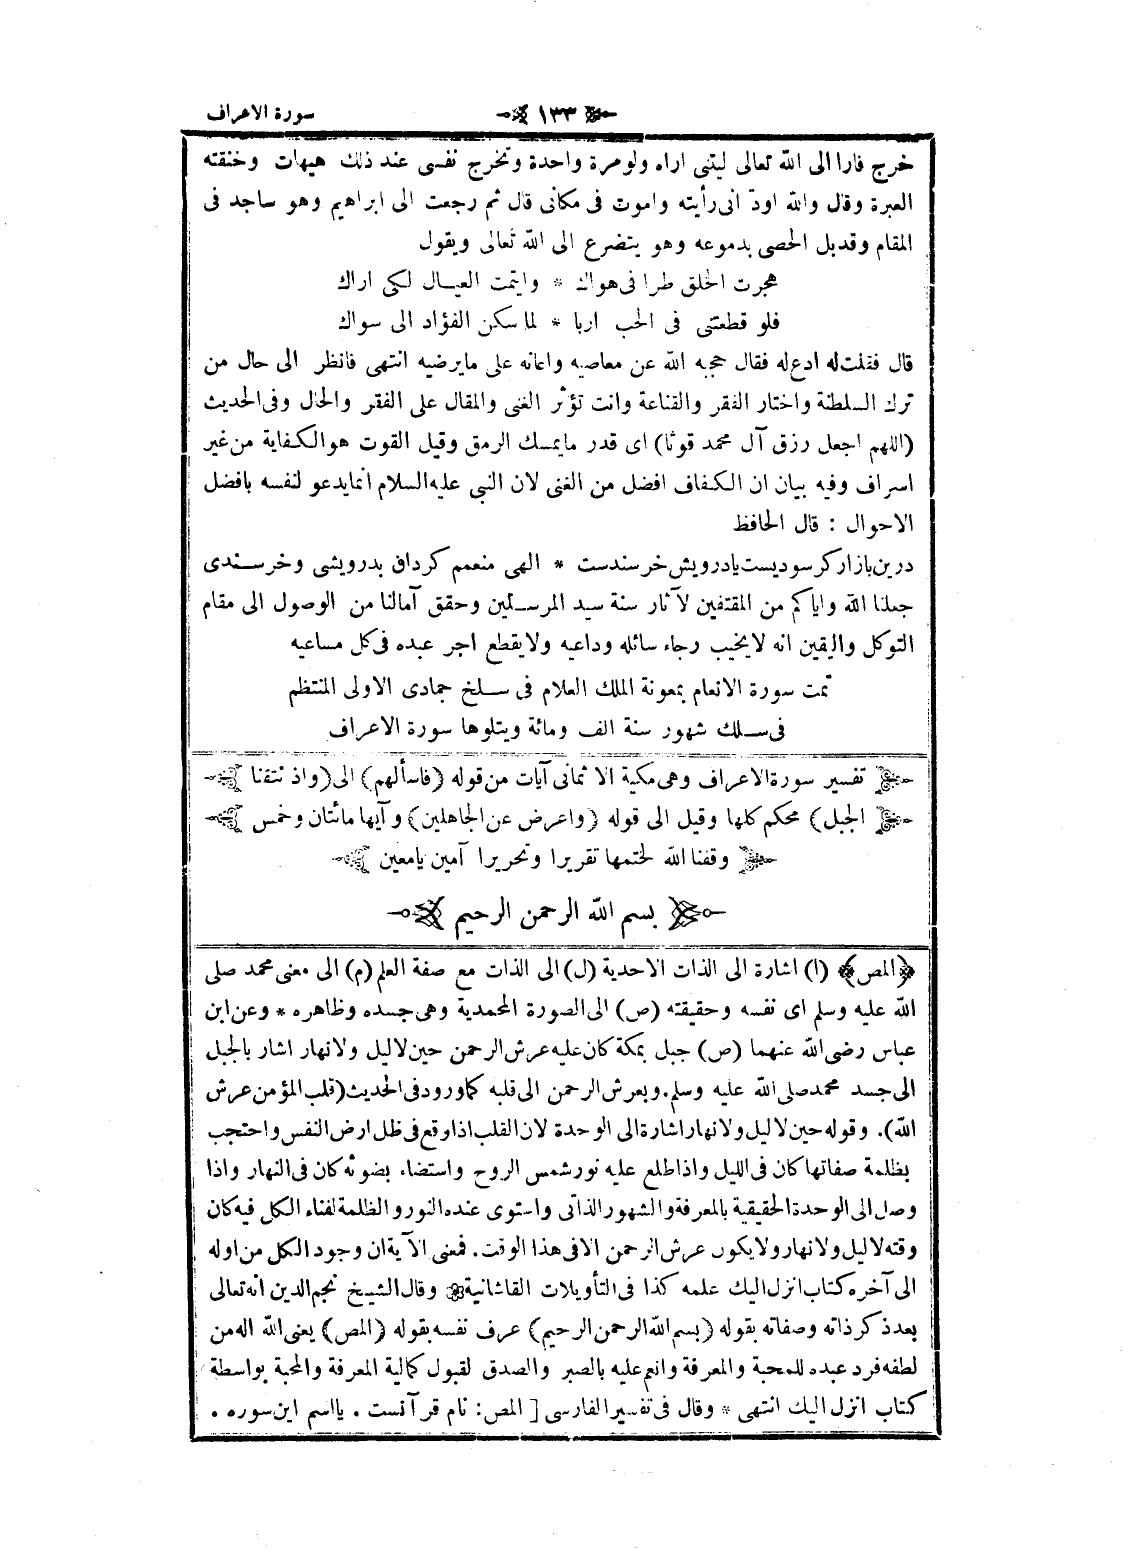 سورة الاعراف ١٣٣
خرج فارا الى الله تعالى ليتنى اراه ولومرة واحدة وتخرج نفسى عند ذلك هيهات وخنقته
العبرة وقال والله اود انى رأيته واموت فى مكانى قال ثم رجعت الى ابراهيم وهو ساجد فى
المقام وقدبل الحصى بدموعه وهو يتضرع الى الله تعالى ويقول
هجرت الخلق طرا فى هواك * وايتمت العيال لكى اراك
فلو قطعتنى فى الحب اربا * لما سكن الفؤاد الى سواك
قال فقلت له ادع له فقال حجبه الله عن معاصيه واعانه على مايرضيه انتهى فانظر الى حال من
ترك السلطنة واختار الفقر والقناعة وانت تؤثر الغنى والمقال على الفقر والحال وفى الحديث
(اللهم اجعل رزق آل محمد قوتا) اى قدر مايمسك الرمق وقيل القوت هو الكفاية من غير
اسراف وفيه بيان ان الكفاف افضل من الغنى لان النبى عليه السلام انما يدعو لنفسه بافضل
الاحوال : قال الحافظ
درين بازار كر سوديست يا درويش خرسندست * الهى منعمم كردان بدرويشى وخرسندى
جعلنا الله واياكم من المقتفين لآثار سنة سيد المرسلين وحقق آمالنا من الوصول الى مقام
التوكل واليقين انه لايخيب رجاء سائله وداعيه ولايقطع اجر عبده فى كل مساعيه
تمت سورة الانعام بمعونة الملك العلام فى سلخ جمادى الاولى المنتظم
فى سلك شهور سنة الف ومائة ويتلوها سورة الاعراف
تفسير سورة الاعراف وهى مكية الا ثمانى آيات من قوله (فاسألهم) الى (واذ نتقنا
الجبل) محكم كلها وقيل الى قوله (واعرض عن الجاهلين) وآيها مائتان وخمس
وقفنا الله لختمها تقريرا وتحريرا آمين يامعين
بسم الله الرحمن الرحيم
﴿المص﴾ (ا) اشارة الى الذات الاحدية (ل) الى الذات مع صفة العلم (م) الى معنى محمد صلى
الله عليه وسلم اى نفسه وحقيقته (ص) الى الصورة المحمدية وهى جسده وظاهره * وعن ابن
عباس رضى الله عنهما (ص) جبل بمكة كان عليه عرش الرحمن حين لاليل ولانهار اشار بالجبل
الى جسد محمد صلى الله عليه وسلم. وبعرش الرحمن الى قلبه كما ورود فى الحديث (قلب المؤمن عرش
الله). وقوله حين لاليل ولانهار اشارة الى الوحدة لان القلب اذا وقع فى ظل ارض النفس واحتجب
بظلمة صفاتها كان فى الليل واذا طلع عليه نور شمس الروح واستضاء بضوئه كان فى النهار واذا
وصل الى الوحدة الحقيقية بالمعرفة والشهور الذاتى واستوى عنده النور والظلمة لفناء الكل فيه كان
وقته لاليل ولانهار ولايكون عرش الرحمن الا فى هذا الوقت. فمعنى الآية ان وجود الكل من اوله
الى آخره كتاب انزل اليك علمه كذا فى التأويلات القاشانية * وقال الشيخ نجم الدين انه تعالى
بعد ذكر ذاته وصفاته بقوله (بسم الله الرحمن الرحيم) عرف نفسه بقوله (المص) يعنى الله اله من
لطفه فرد عبده للمحبة والمعرفة وانعم عليه بالصبر والصدق لقبول كمالية المعرفة والمحبة بواسطة
كتاب انزل اليك انتهى * وقال فى تفسير الفارسى [ المص : نام قرآنست . يا اسم اين سوره .